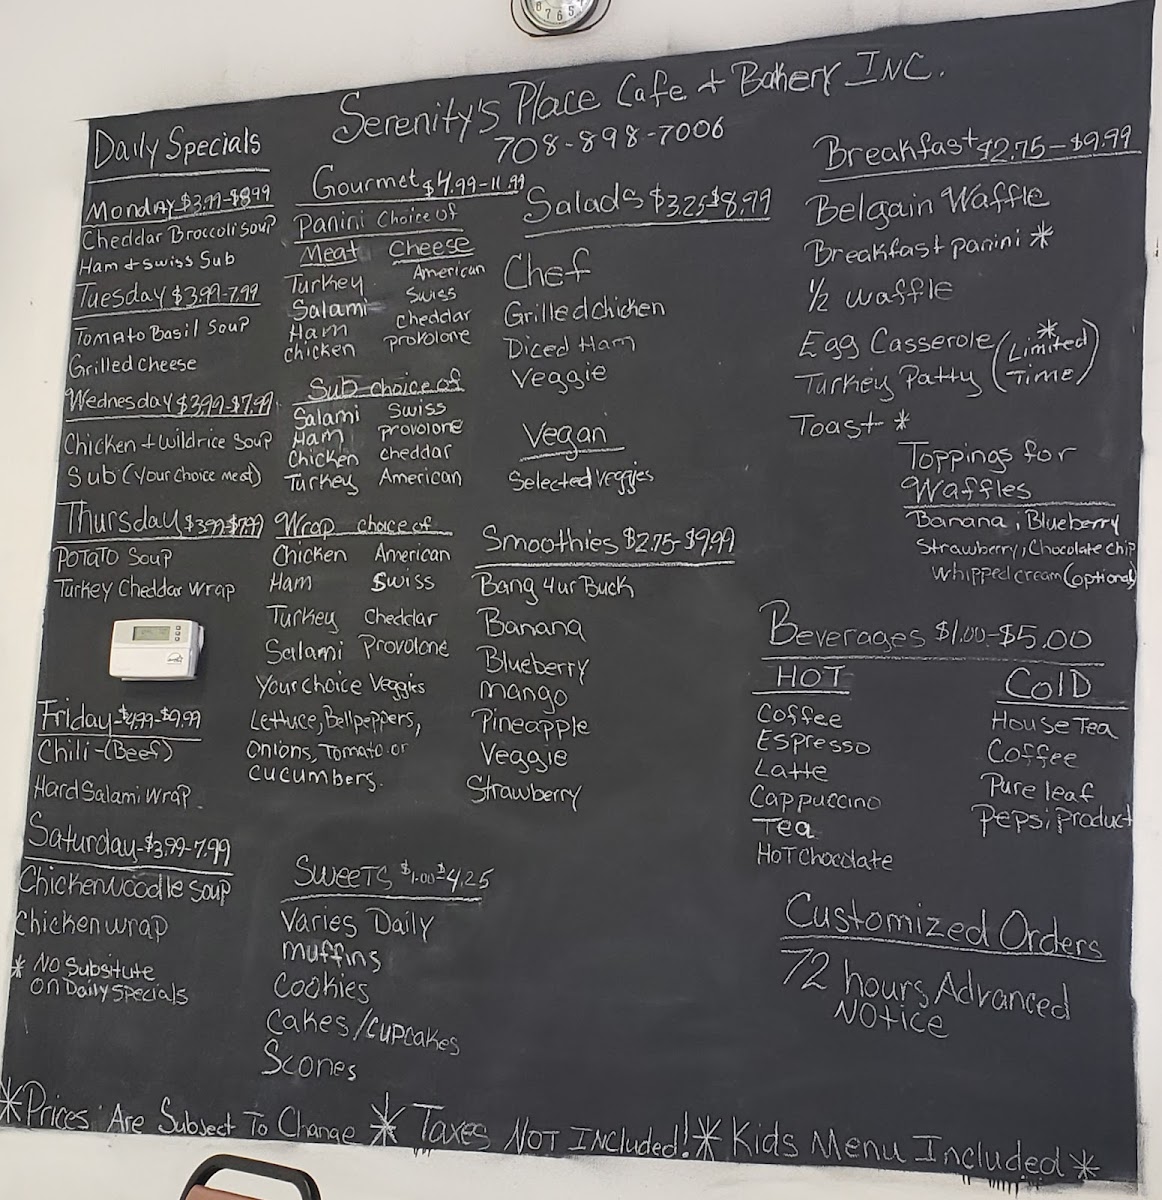 Serenity's Place Cafe + Bakery INC.
708-898-7006
Daily Specials
Monday $3.99-$8.99
Cheddar Broccoli Soup
Ham + Swiss Sub
Tuesday $3.99-7.99
Tomato Basil Soup
Grilled Cheese
Wednesday $3.99-$7.99
Chicken + Wildrice Soup
Sub (Your Choice meat)
Thursday $3.99-$7.99
Potato Soup
Turkey Cheddar Wrap
Friday-$4.99-$9.99
Chili-(Beef)
Hard Salami Wrap
Saturday-$3.99-7.99
Chicken Noodle Soup
Chicken wrap
* No Subsitute
on Daily Specials
Gourmet $4.99-11.99
Panini Choice of
Meat Cheese
Turkey American
Salami Swiss
Ham cheddar
chicken provolone
Sub choice of
Salami Swiss
Ham provolone
Chicken cheddar
Turkey American
Wrap choice of
Chicken American
Ham Swiss
Turkey Cheddar
Salami Provolone
Your choice Veggies
Lettuce, Bellpeppers,
Onions, Tomato or
cucumbers.
Sweets $1.00-$4.25
Varies Daily
Muffins
Cookies
Cakes/Cupcakes
Scones
Salads $3.25-$8.99
Chef
Grilled chicken
Diced Ham
Veggie
Vegan
Selected Veggies
Smoothies $2.75-$9.99
Bang 4ur Buck
Banana
Blueberry
Mango
Pineapple
Veggie
Strawberry
Breakfast $2.75-$9.99
Belgain Waffle
Breakfast panini *
1/2 waffle
Egg Casserole (Limited *
Turkey Patty Time)
Toast *
Toppings for
Waffles
Banana, Blueberry
Strawberry, Chocolate chip
Whipped cream (optional)
Beverages $1.00-$5.00
HOT
Coffee
Espresso
Latte
Cappuccino
Tea
Hot chocolate
Cold
House Tea
Coffee
Pure leaf
Pepsi product
Customized Orders
72 hours Advanced
Notice
*Prices Are Subject To Change * Taxes Not Included! * Kids Menu Included *